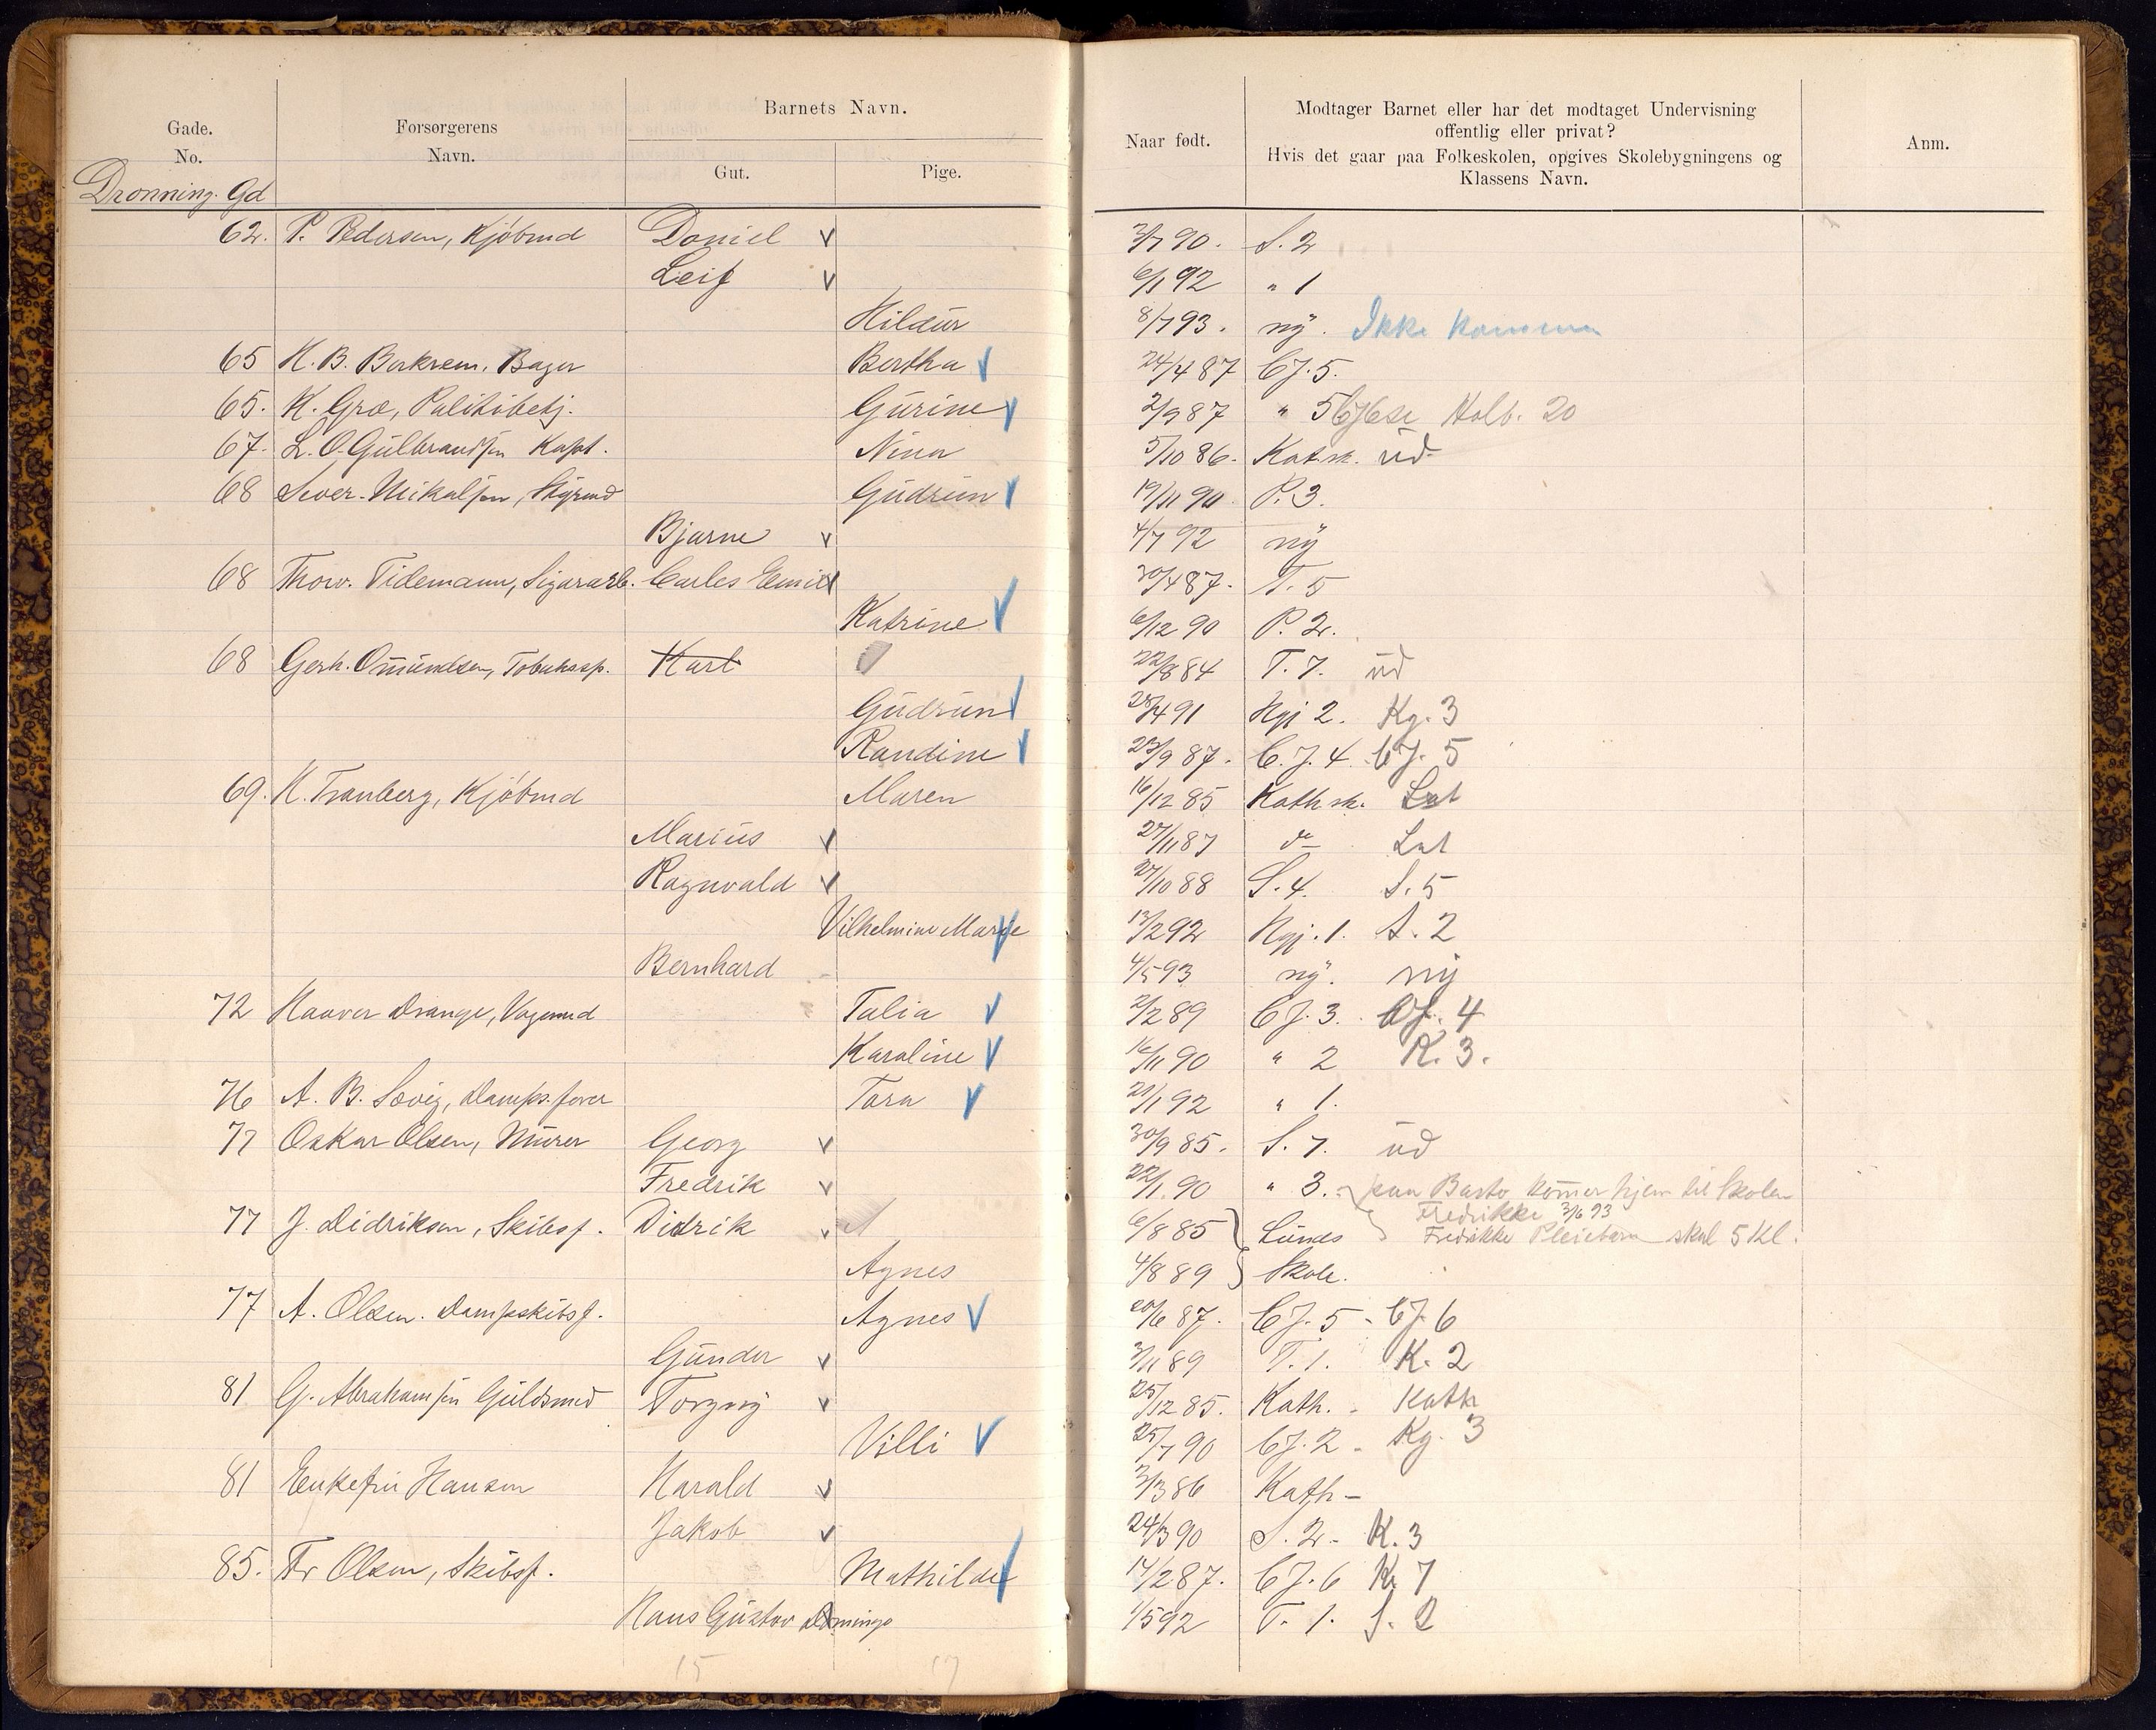 Gade. No. Forsørgerens Navn. Barnets Navn. Gut. Pige. Naar født. Modtager Barnet eller har det modtaget Undervisning offentlig eller privat? Hvis det gaar paa Folkeskolen, opgives Skolebygningens og Klassens Navn. Anm.
Dronning. Gd
62. P. Pedersen, Kjöbmd Daniel v 3/7 90. S. 2
Leif v 6/1 92 " 1
Hildur 8/7 93. ny. Ikke kommen
65 H. B. Berkrem, Bager Bertha v 24/4 87 CJ. 5.
65. K. Gra, Politibetj. Gurine v 2/9 87 " 5 Holb. 20
67. L. O. Gulbrandsen Kapt. Nina 5/10 86. Kat.sk. ud
68 Siver Mikalsen, Styrmd Gudrun v 19/11 90 P. 3.
Bjarne v 4/7 92 ny
68 Thorv. Tidemann, Sigararb. Carles Emil v 30/4 87. T. 5
Katrine v 6/12 90 P. 2.
68 Gerh. Omundsen, Tobakssp. Karl 22/8 84 T. 7. ud
Gudrun v 28/4 91 Kgj 2. Kg. 3
Randine v 23/9 87. C. J. 4. CJ. 5
69. K. Tranberg, Kjöbmd Maren 16/12 85 Kathsk. Lat
Marius v 27/11 87 do Lat
Ragnvald v 27/10 88 S. 4. S. 5
Vilhelmine Marie v 13/2 92 Kgj. 1. S. 2
Bernhard 4/5 93 ny. ny
72 Haaver Drange, Vognmd Talia v 2/2 89 CJ. 3. CJ. 4
Karoline v 16/11 90 " 2 K. 3.
76 A. B. Sævig, Damps.fører Tora v 21/1 92 " 1.
77 Oskar Olsen, Murer Georg v 30/9 85. S. 7. ud
Fredrik v 22/1 90 " 3. paa Basto kommer hjem til Skolen
Fredrikke 3/6 93
77 J. Didriksen, Skibsf. Didrik v 6/8 85 Lunds Fredrikke Pleiebarn skal 5 Kl.
Agnes 4/8 89 Skole.
77 A. Olsen. Dampskibsf. Agnes v 20/6 87. CJ. 5 - CJ. 6
Gunder v 3/11 89 T. 1. K. 2
81 G. Abrahamsen Guldsmed Torgny v 25/12 85. Kath. - Kath
Villi v 25/7 90 CJ. 2 - Kg. 3
81 Enkefru Hansen Harald v 3/3 86 Kath -
Jakob v 24/3 90 S. 2. - K. 3
85. Fr Olsen, Skibsf. Mathilde v 14/2 87. CJ. 6 K. 7
Hans Gustav Domingo 1/5 92 T. 1. S. 2
15 17